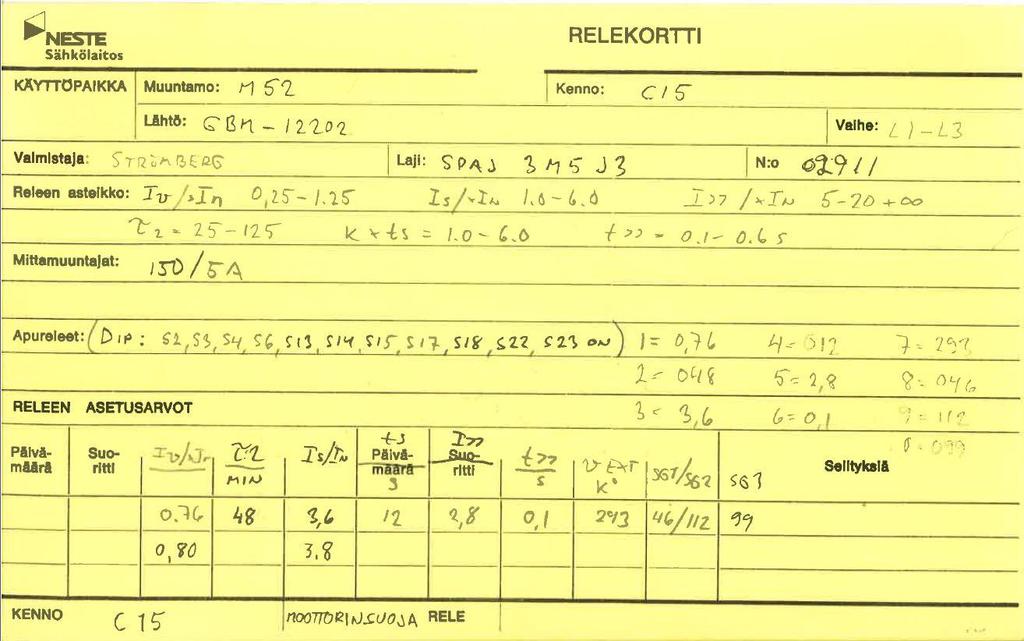 NESTE
Sähkölaitos
RELEKORTTI
KÄYTTÖPAIKKA Muuntamo: M52 Kenno: C15
Lähtö: GBM-12202 Vaihe: L1-L3
Valmistaja: STRÖMBERG Laji: SPAJ 3M5 J3 N:o 02911
Releen asteikko: Iv/×In 0,25-1.25 Is/×IN 1.0-6.0 I>>/×IN 5-20+∞
τ2 = 25-125 k×ts = 1.0-6.0 t>> = 0.1-0.6 s
Mittamuuntajat: 150/5A
Apureleet: (DIP: S2,S3,S4,S6,S13,S14,S15,S17,S18,S22,S23 ON) 1= 0,76 4= 012 7= 293
2= 048 5= 2,8 8= 046
RELEEN ASETUSARVOT 3= 3,6 6= 0,1 9= 112
0= 099
Päivä-määrä Suo-ritti Iv/In τ2 MIN Is/IN ts Päivä-määrä s I>> Suo-ritti t>> s v EXT K° SG1/SG2 SG3 Selityksiä
0.76 48 3,6 12 2,8 0,1 293 46/112 99
0,80 3.8
KENNO C15 MOOTTORINSUOJA RELE